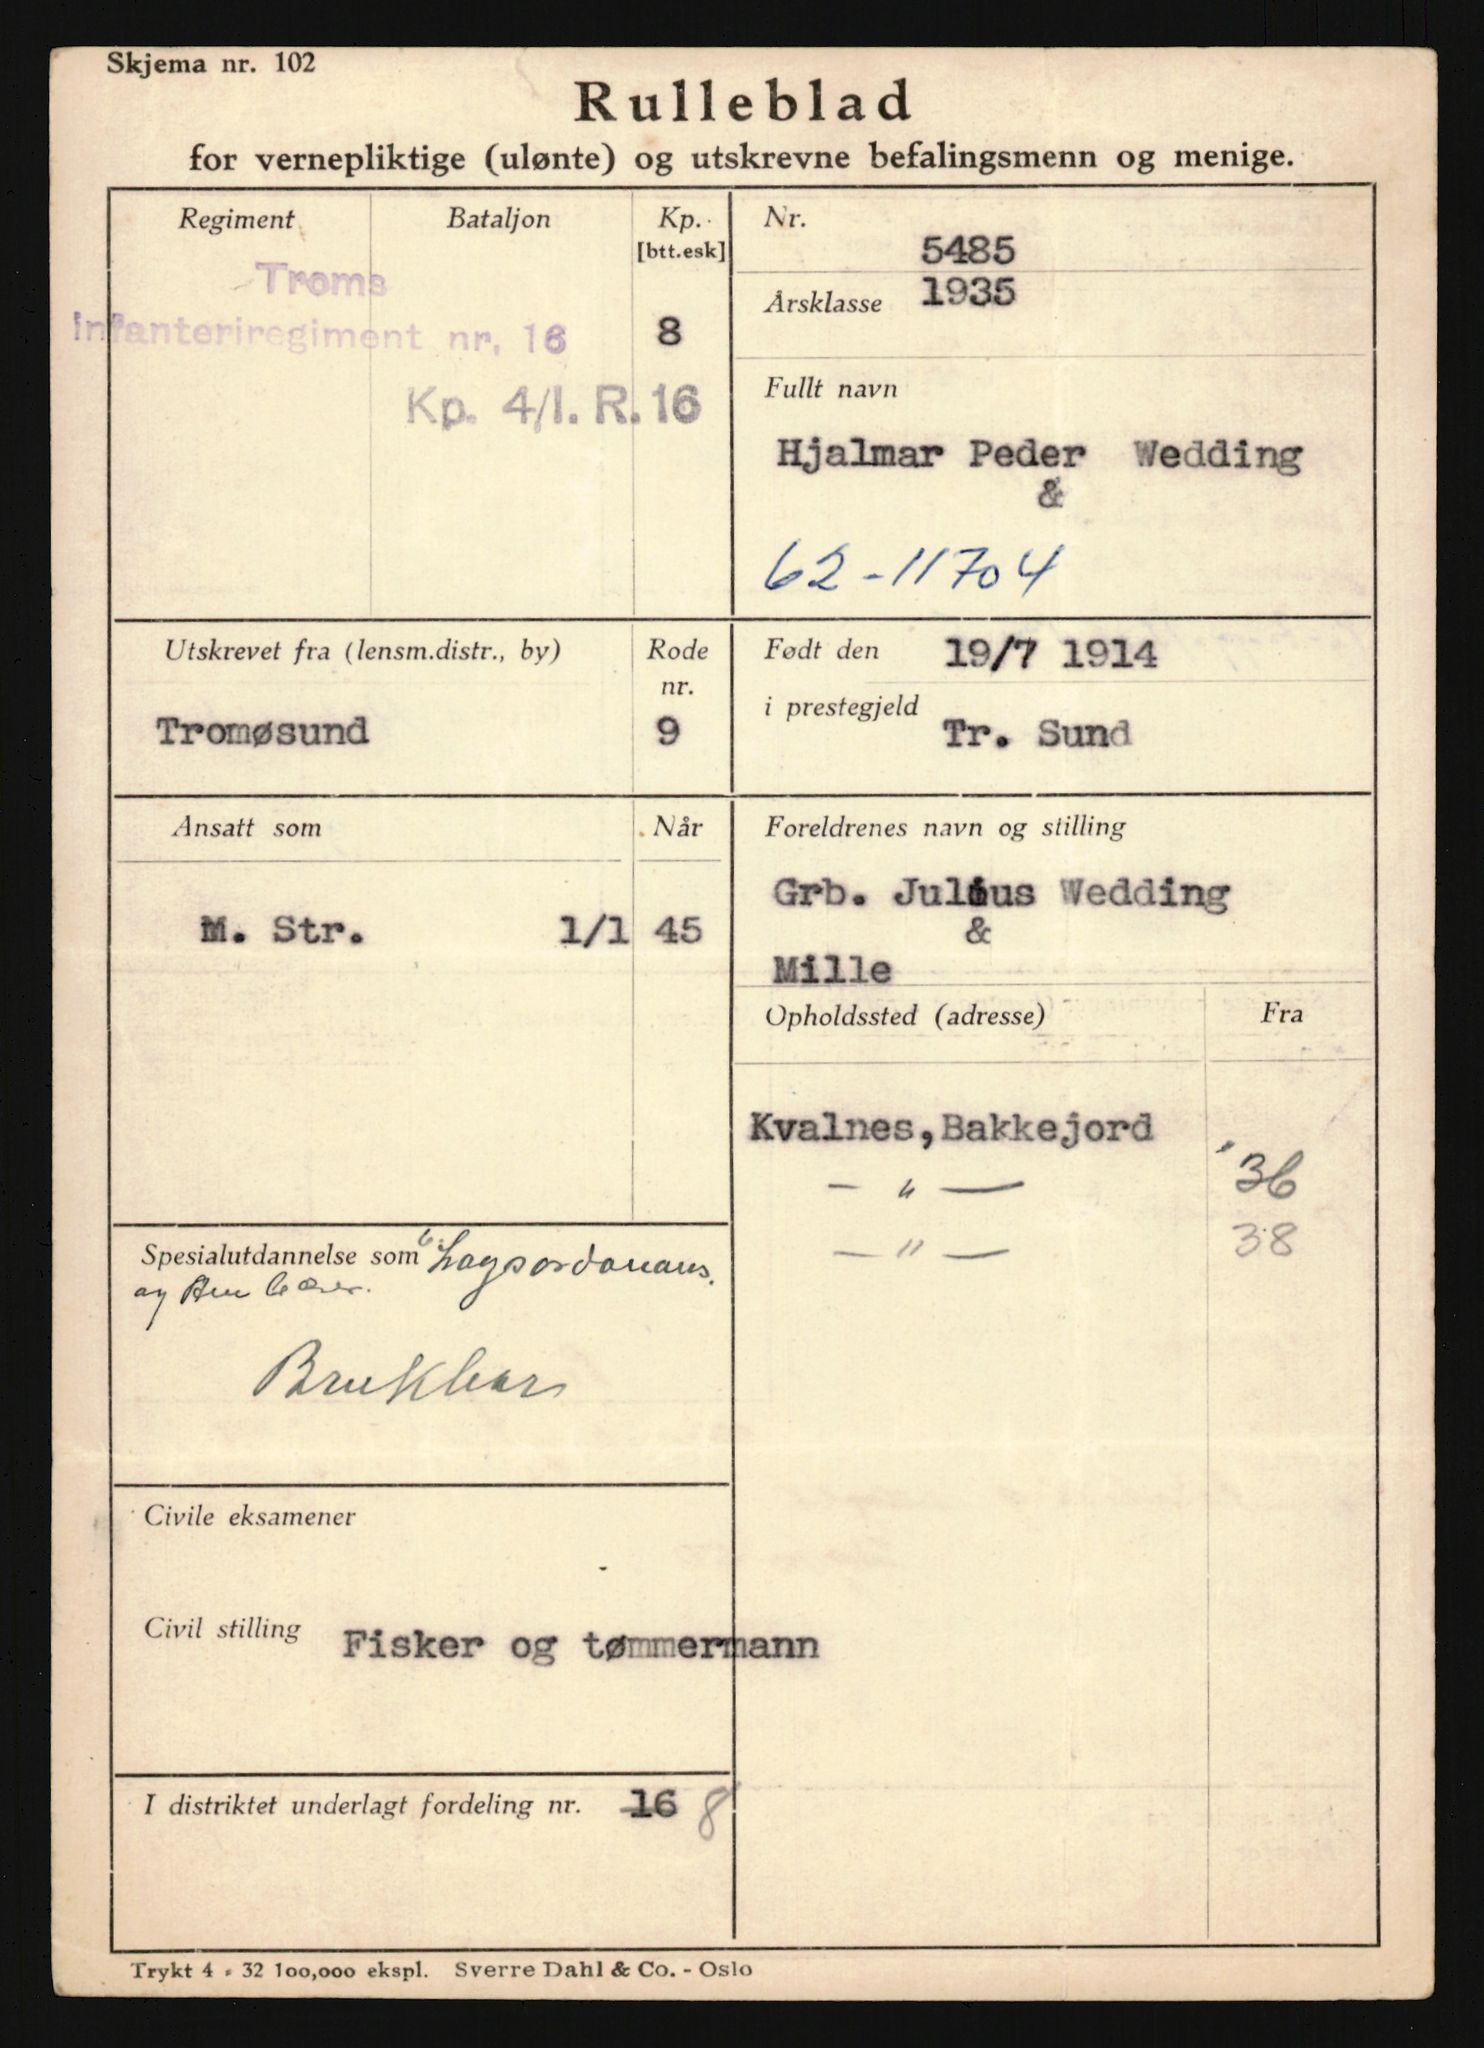 Skjema nr. 102
Rulleblad
for vernepliktige (ulønte) og utskrevne befalingsmenn og menige.
Regiment Bataljon Kp. [btt.esk]
Troms
Infanteriregiment nr. 16 8
Kp. 4/I. R. 16
Nr. 5485
Årsklasse 1935
Fullt navn
Hjalmar Peder Wedding
&
62-11704
Utskrevet fra (lensm.distr., by) Rode nr.
Tromøsund 9
Født den 19/7 1914
i prestegjeld Tr. Sund
Ansatt som Når
M. Str. 1/1 45
Foreldrenes navn og stilling
Grb. Julius Wedding
&
Mille
Opholdssted (adresse) Fra
Kvalnes, Bakkejord
— " — '36
— " — 38
Spesialutdannelse som Lagsordonans.
og
Brukbar
Civile eksamener
-
Civil stilling Fisker og tømmermann
I distriktet underlagt fordeling nr. 16 8
Trykt 4 - 32 100,000 ekspl. Sverre Dahl & Co. - Oslo